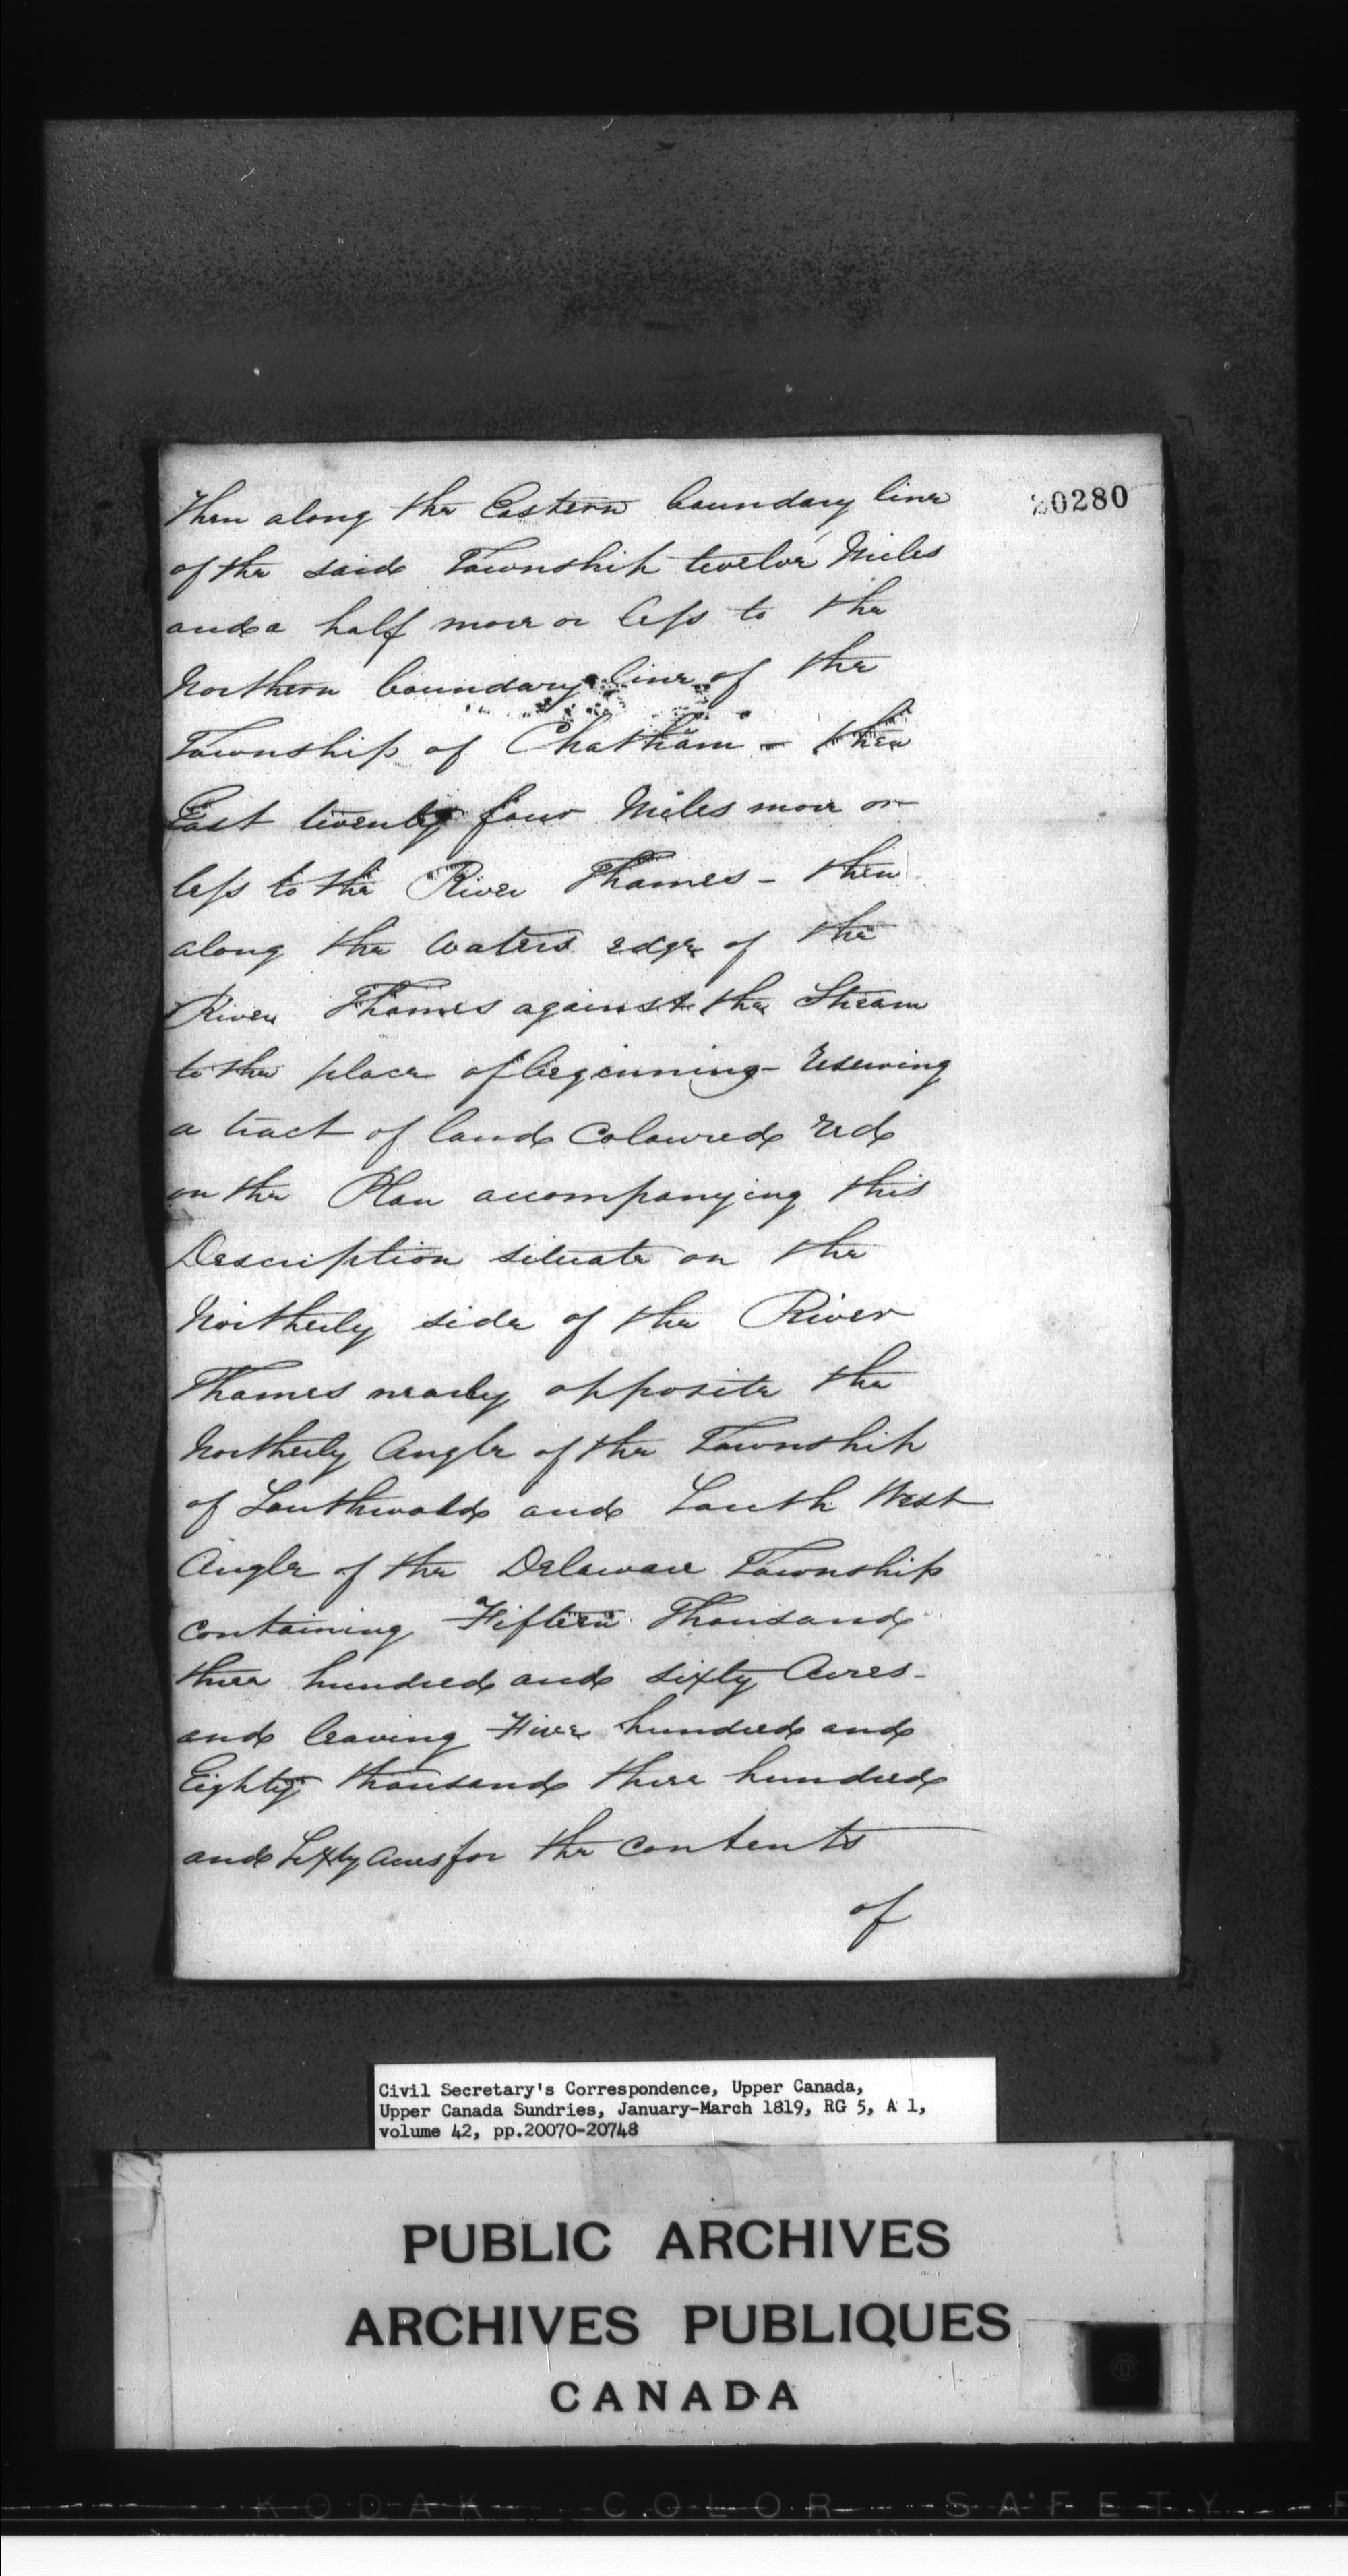 20280
then along the Eastern boundary line
of the said Township twelve Miles
and a half more or less to the
Northern boundary line of the
Township of Chatham - then
East twenty four Miles more or
less to the River Thames - then
along the waters edge of the
River Thames against the Stream
to the place of beginning - reserving
a tract of land Coloured red
on the Plan accompanying this
Description situate on the
Northerly side of the River
Thames nearly opposite the
Northerly Angle of the Township
of Southwold and South West
Angle of the Delaware Township
containing Fifteen Thousand
three hundred and sixty Acres -
and leaving Five hundred and
Eighty thousand three hundred
and Sixty Acres for the contents
of
Civil Secretary's Correspondence, Upper Canada,
Upper Canada Sundries, January-March 1819, RG 5, A 1,
volume 42, pp.20070-20748
PUBLIC ARCHIVES
ARCHIVES PUBLIQUES
CANADA
KODAK COLOR SAFETY F